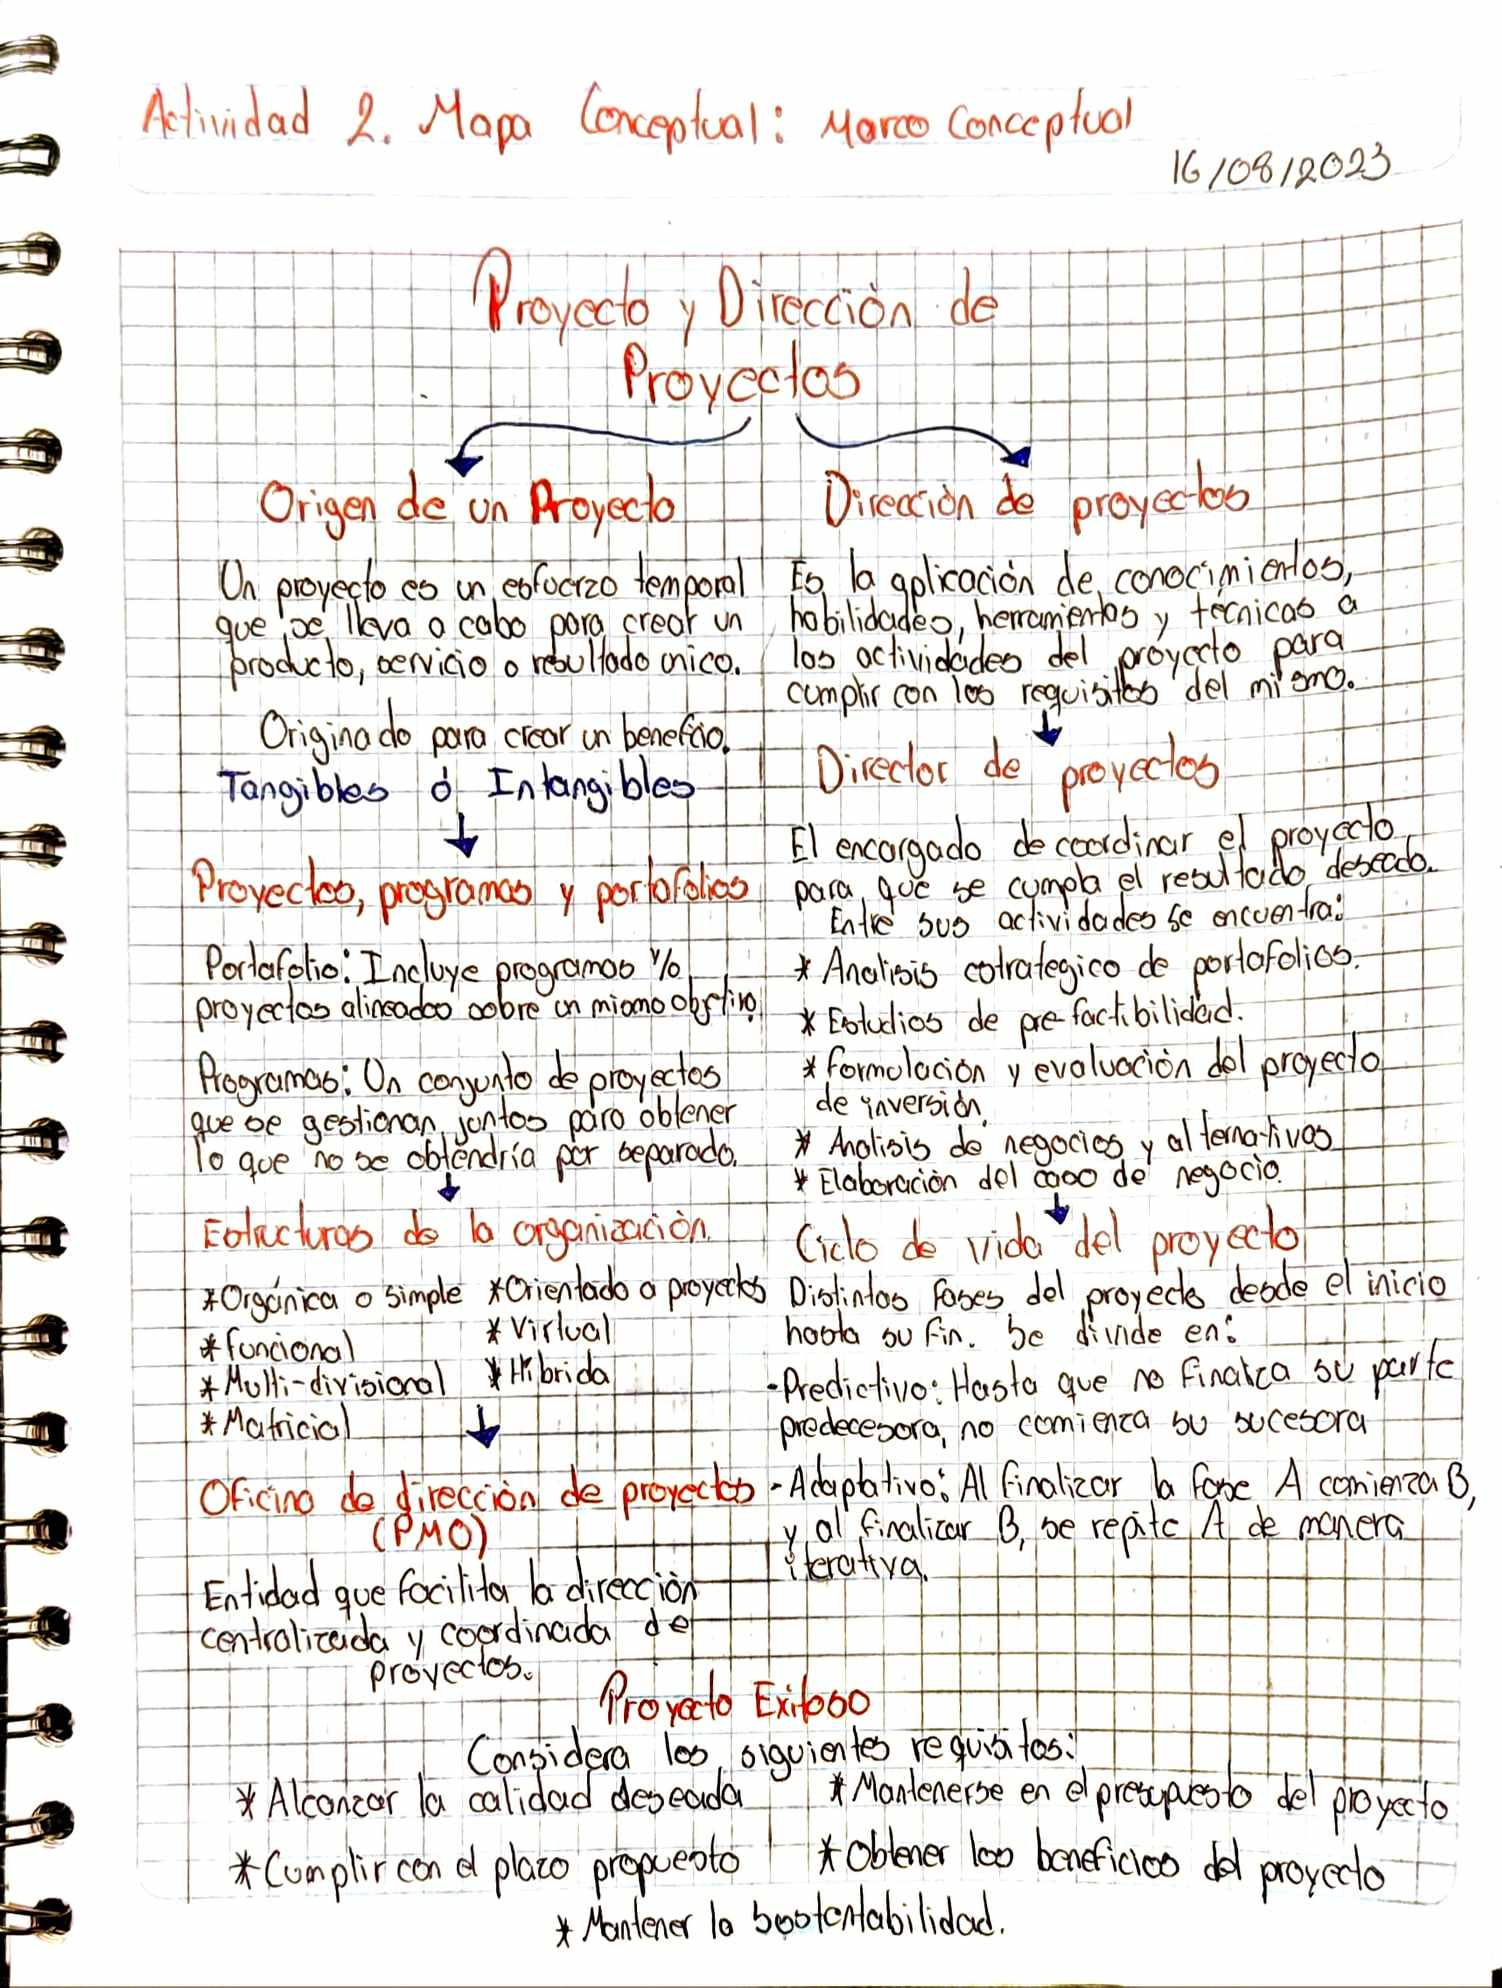 Actividad 2. Mapa Conceptual: Marco Conceptual
16/08/2023
Proyecto y Dirección de
Proyectos
Origen de un Proyecto
Un proyecto es un esfuerzo temporal
que se lleva a cabo para crear un
producto, servicio o resultado unico.
Originado para crear un beneficio.
Tangibles ó Intangibles
Proyectos, programas y portafolios
Portafolio: Incluye programas y/o
proyectos alineados sobre un mismo objetivo
Programas: Un conjunto de proyectos
que se gestionan juntos para obtener
lo que no se obtendría por separado.
Estructuras de la organización.
*Orgánica o simple *Orientado a proyectos
*Funcional *Virtual
*Multi-divisional *Híbrida
*Matricial
Oficina de dirección de proyectos
(PMO)
Entidad que facilita la dirección
centralizada y coordinada de
proyectos.
Dirección de proyectos
Es la aplicación de conocimientos,
habilidades, herramientas y técnicas a
las actividades del proyecto para
cumplir con los requisitos del mismo.
Director de proyectos
El encargado de coordinar el proyecto
para que se cumpla el resultado deseado.
Entre sus actividades se encuentra:
* Analisis estrategico de portafolios.
* Estudios de pre-factibilidad.
* Formulación y evaluación del proyecto
de inversión.
* Analisis de negocios y alternativas
* Elaboración del caso de negocio.
Ciclo de vida del proyecto
Distintas fases del proyecto desde el inicio
hasta su fin. Se divide en:
-Predictivo: Hasta que no finaliza su parte
predecesora, no comienza su sucesora
-Adaptativo: Al finalizar la fase A comienza B,
y al finalizar B, se repite A de manera
iterativa.
Proyecto Exitoso
Considera los siguientes requisitos:
* Alcanzar la calidad deseada * Mantenerse en el presupuesto del proyecto
* Cumplir con el plazo propuesto * Obtener los beneficios del proyecto
* Mantener la sostentabilidad.